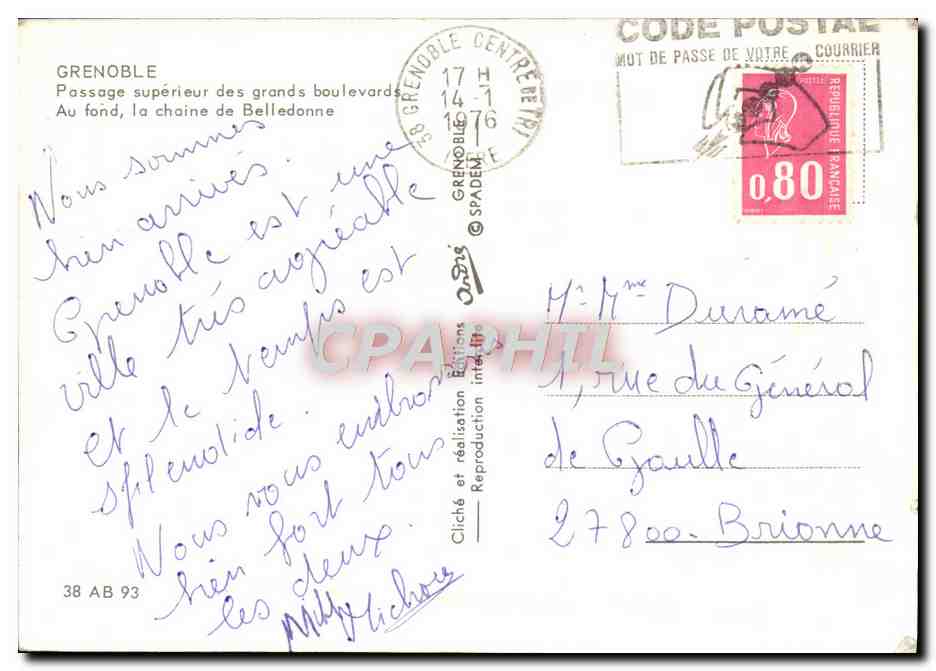 GRENOBLE
Passage supérieur des grands boulevards
Au fond, la chaine de Belledonne
Nous sommes
bien arrivés.
Grenoble est une
ville très agréable
et le temps est
splendide.
Nous vous embrassons
bien fort tous
les deux.
38 AB 93
Cliché et réalisation Editions André GRENOBLE
Reproduction interdite © SPADEM
38 GRENOBLE CENTRE DE TRI
17 H
14 - 1
1976
ISERE
CODE POSTAL
MOT DE PASSE DE VOTRE COURRIER
POSTES
REPUBLIQUE FRANÇAISE
0,80
Mr Mme Duramé
1, rue du Général
de Gaulle
27800 - Brionne
CPAPHIL